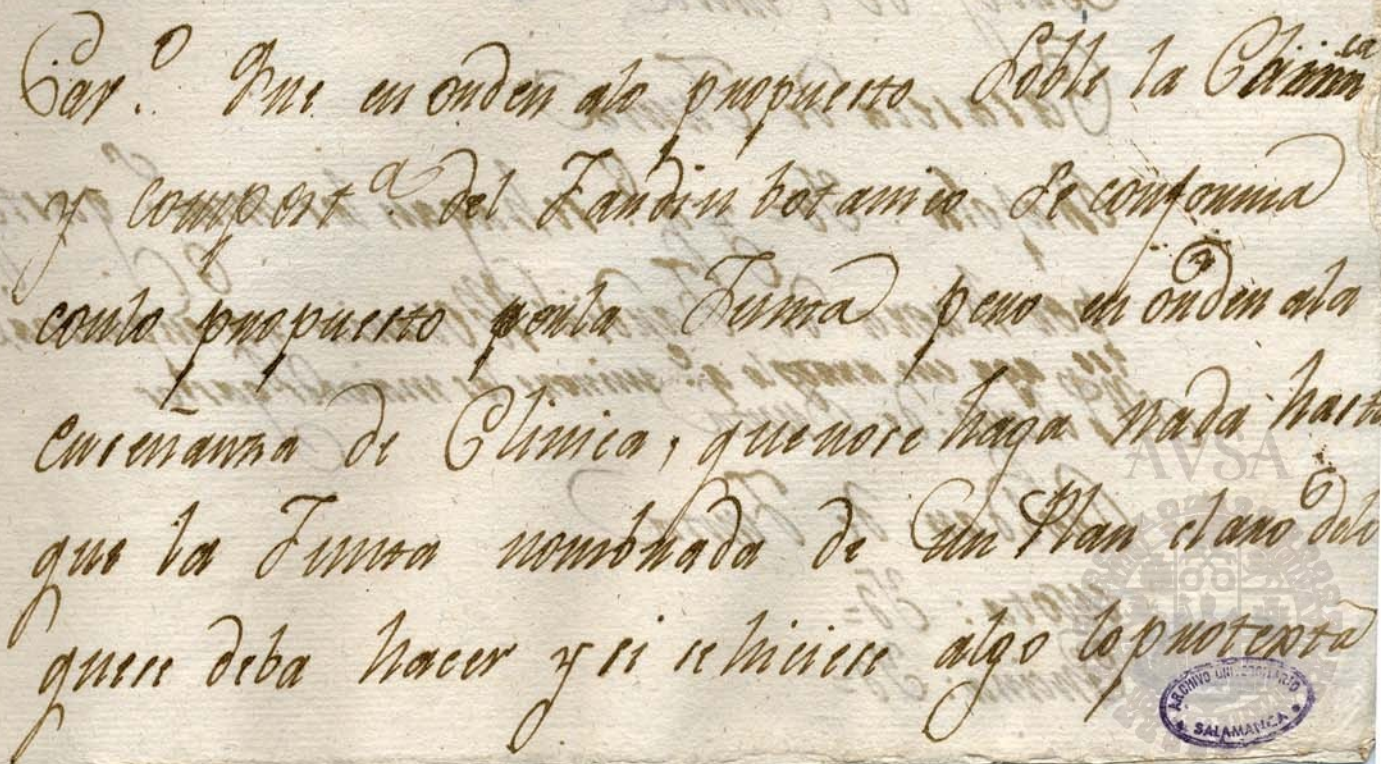 Gar.º Que en orden alo propuesto sobre la Chimi.ca
y compost.a del Jardin botanico se conforma
conlo propuesto porla Junta pero en orden ala
enseñanza de Clinica, quenose haga nada hasta
que la Junta nombrada de un Plan claro delo
quese deba hacer y si se hiciese algo loprotexta
AVSA
ARCHIVO UNIVERSITARIO
SALAMANCA